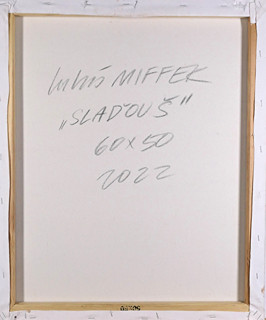 Luboš MIFFEK
„SLAĎOUŠ"
60x50
2022